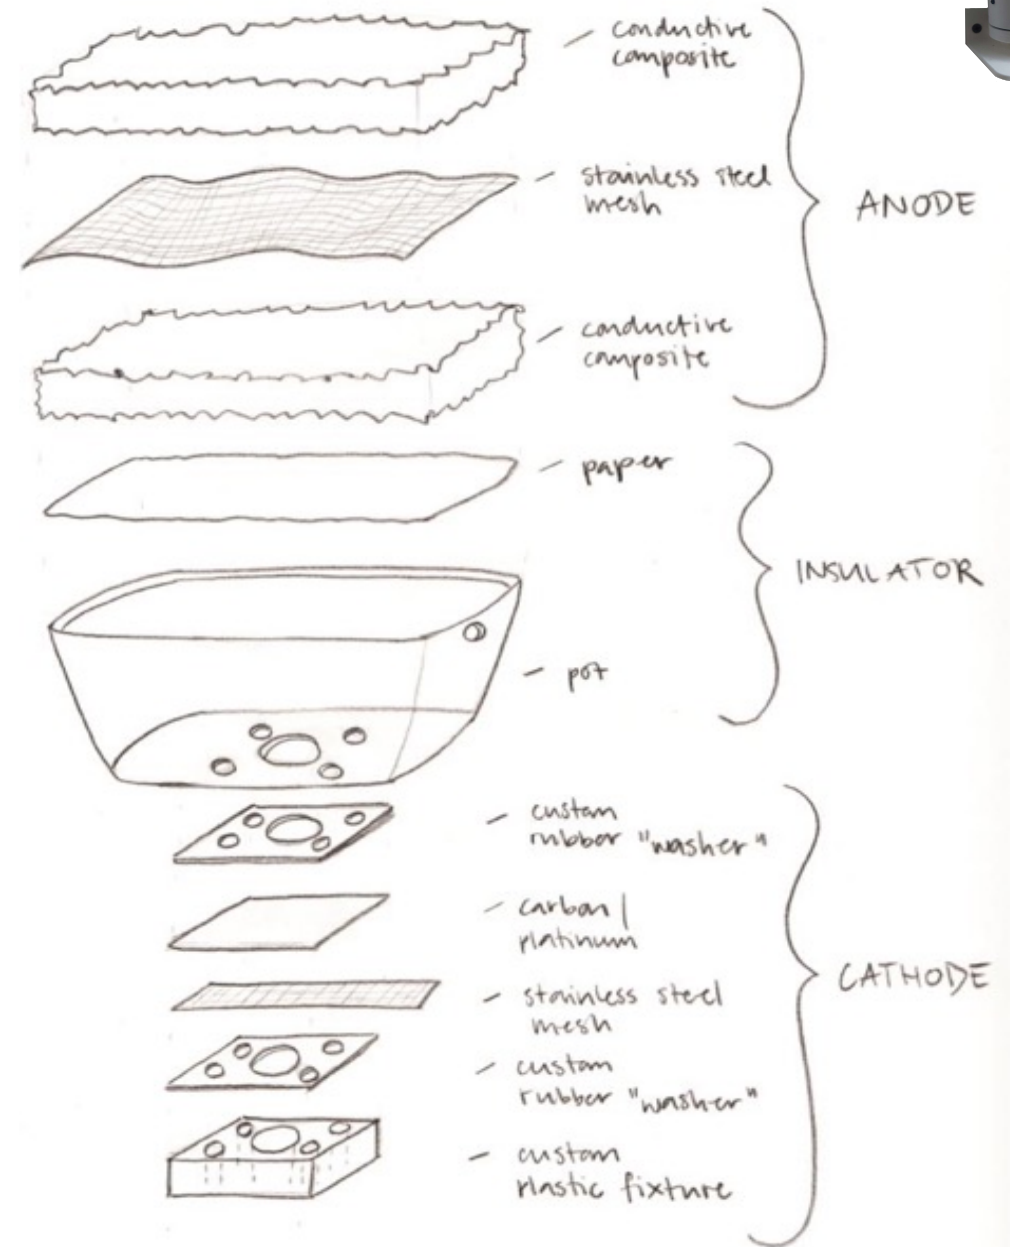 conductive
composite
stainless steel
mesh
ANODE
conductive
composite
paper
INSULATOR
pot
custom
rubber "washer"
carbon/
platinum
CATHODE
stainless steel
mesh
custom
rubber "washer"
custom
plastic fixture